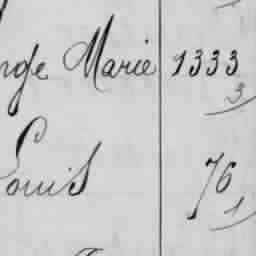 nge Marie 1333
3
Louis 76
1